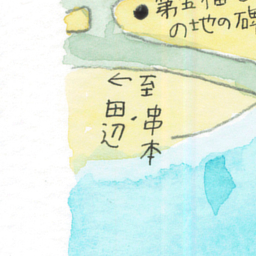 第五福
の地の碑
至串本・
田辺
←